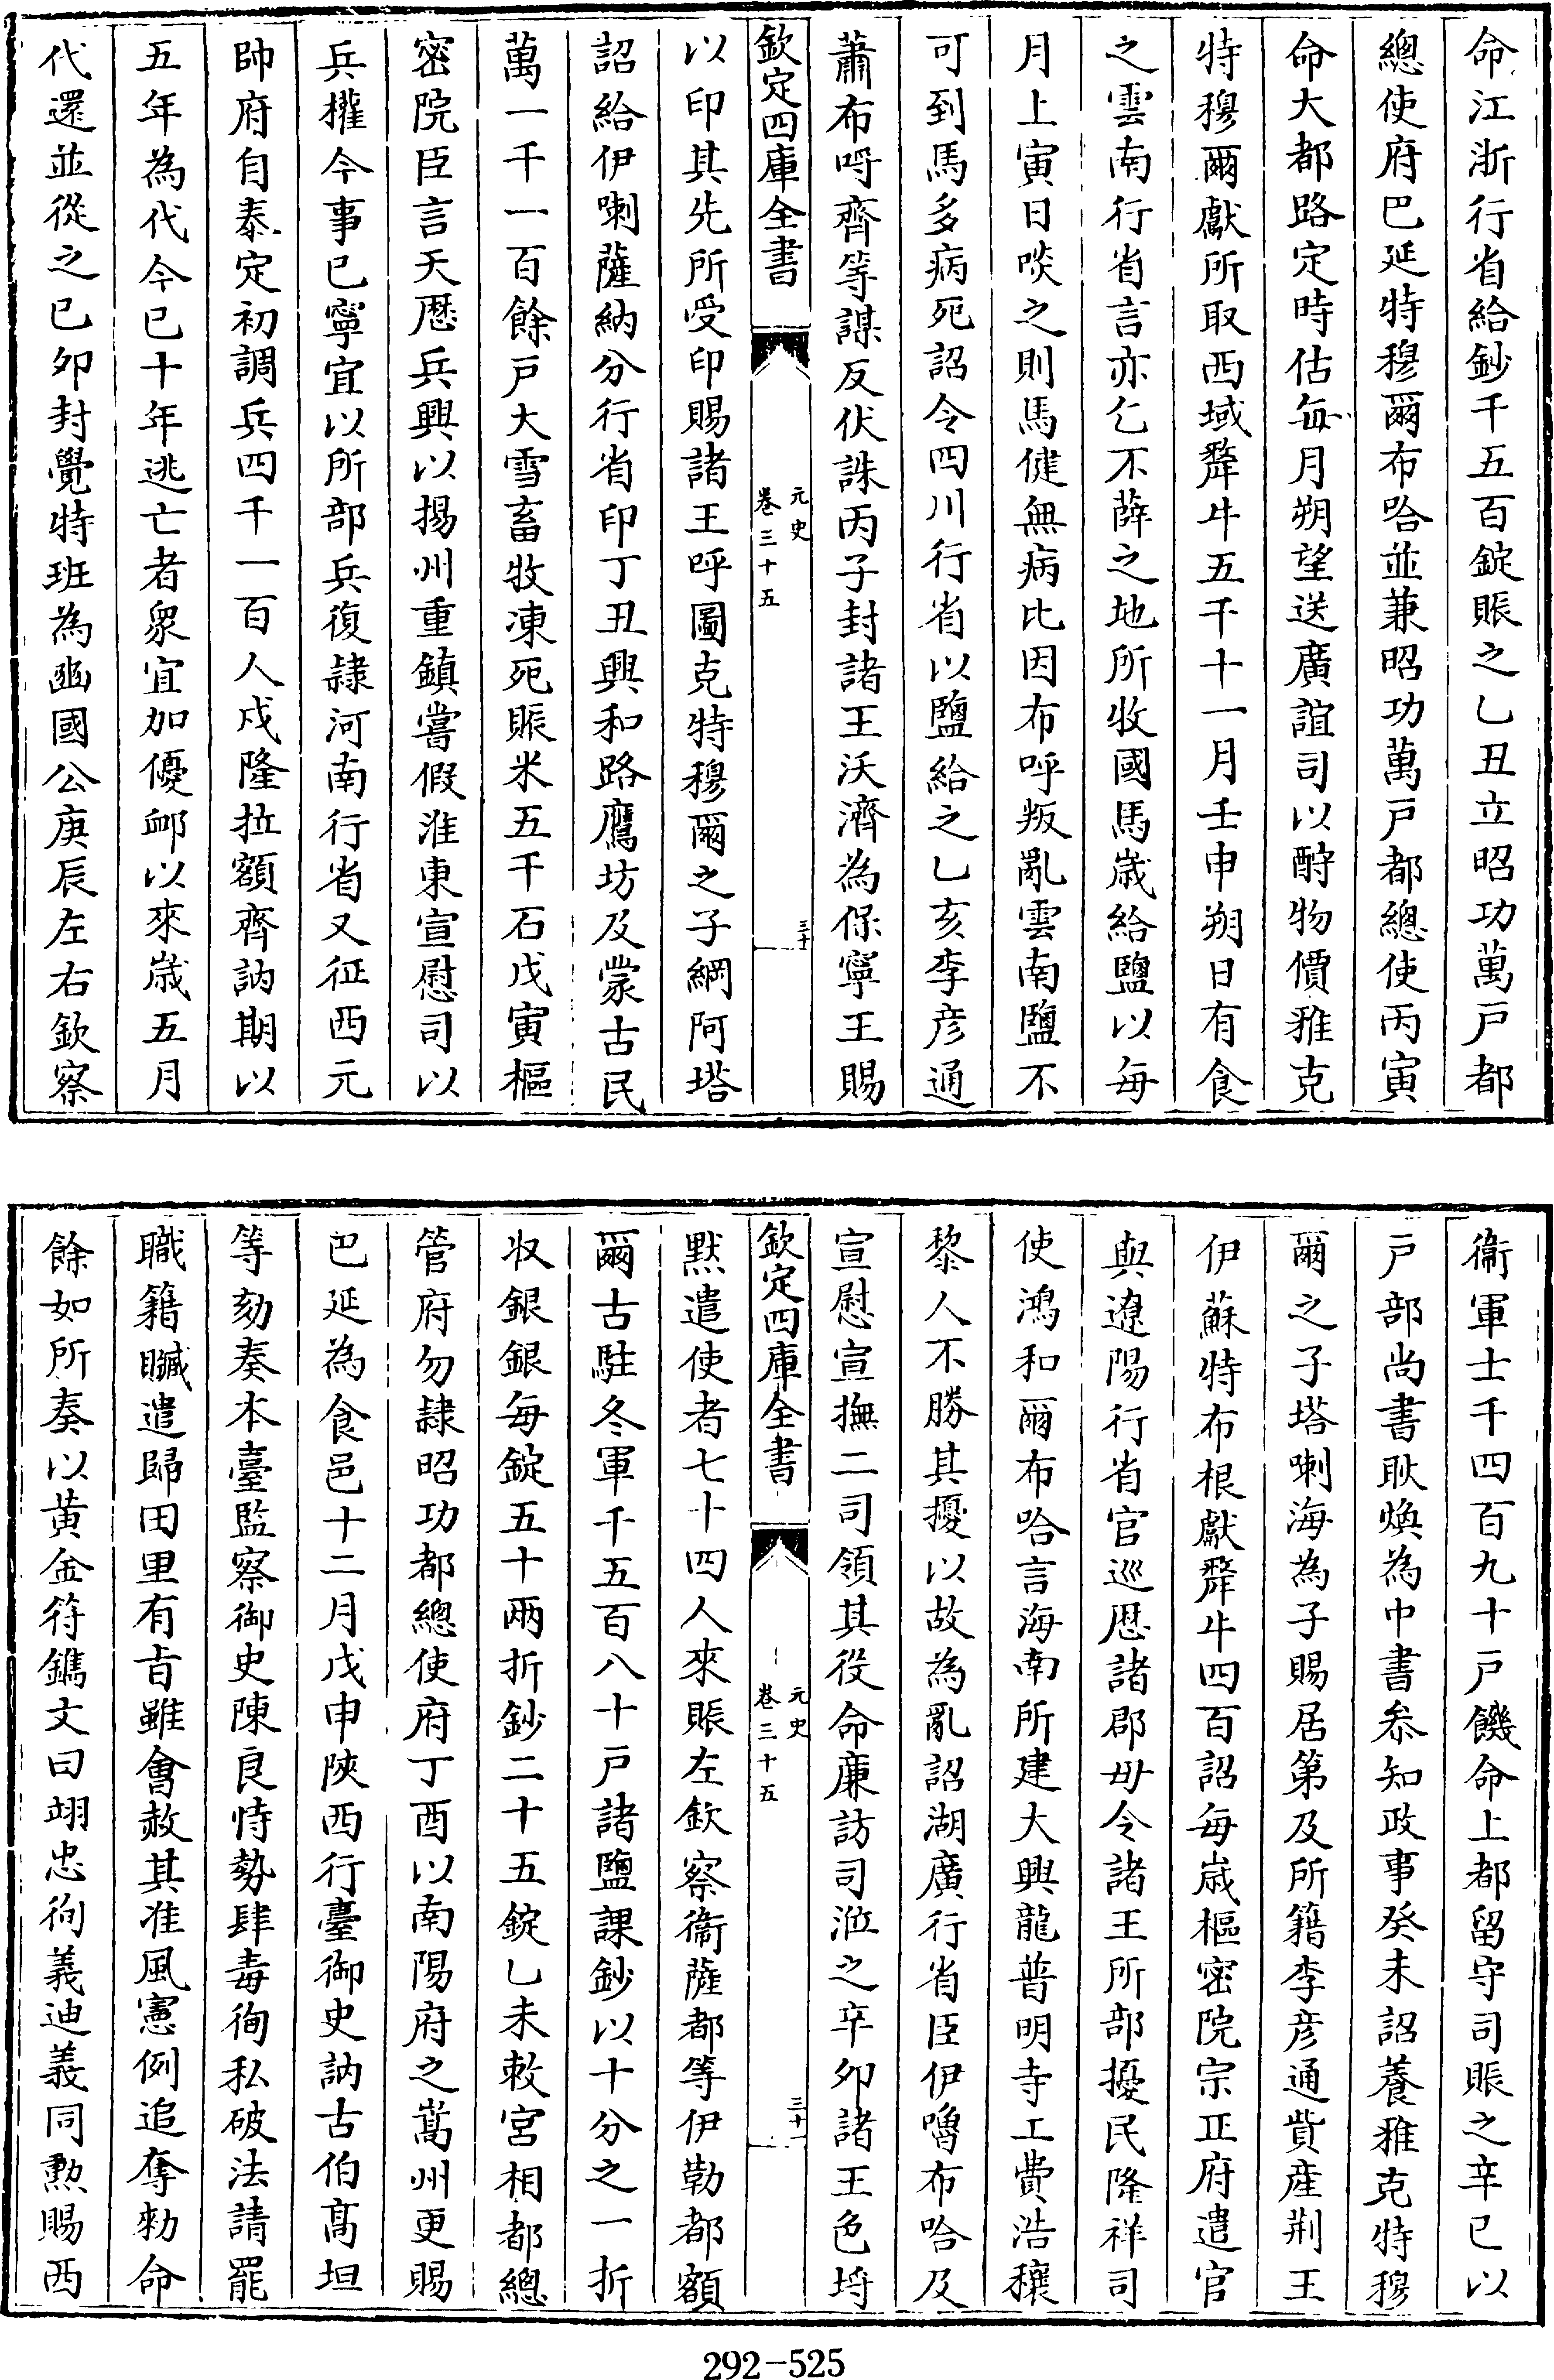 命江浙行省給鈔千五百錠賑之乙丑立昭功萬戸都
總使府巴延特穆爾布哈並兼昭功萬戸都總使丙寅
命大都路定時估每月朔望送廣誼司以酧物價雅克
特穆爾獻所取西域犛牛五千十一月壬申朔日有食
之雲南行省言亦乞不薛之地所收國馬歳給鹽以每
月上寅日啖之則馬健無病比因布呼叛亂雲南鹽不
可到馬多病死詔令四川行省以鹽給之乙亥李彦通
蕭布哷齊等謀反伏誅丙子封諸王沃濟為保寧王賜
欽定四庫全書
元史
卷三十五
三十
以印其先所受印賜諸王呼圖克特穆爾之子綱阿塔
詔給伊喇薩納分行省印丁丑興和路鷹坊及䝉古民
萬一千一百餘戸大雪畜牧凍死賑米五千石戊寅樞
密院臣言天厯兵興以揚州重鎮嘗假淮東宣慰司以
兵權今事已寧宜以所部兵復隷河南行省又征西元
帥府自泰定初調兵四千一百人戍隆拉額齊訥期以
五年為代今已十年逃亡者衆宜加優䘏以來歳五月
代還並從之己夘封覺特班為豳國公庚辰左右欽察
衞軍士千四百九十戸饑命上都留守司賑之辛巳以
戸部尚書耿煥為中書叅知政事癸未詔養雅克特穆
爾之子塔喇海為子賜居第及所籍李彦通貲産荆王
伊蘇特布根獻犛牛四百詔每歳樞密院宗正府遣官
與遼陽行省官巡厯諸郡毋令諸王所部擾民隆祥司
使鴻和爾布哈言海南所建大興龍普明寺工費浩穰
黎人不勝其擾以故為亂詔湖廣行省臣伊嚕布哈及
宣慰宣撫二司領其役命廉訪司涖之辛夘諸王色埒
欽定四庫全書
元史
卷三十五
三十一
默遣使者七十四人來賑左欽察衞薩都等伊勒都額
爾古駐冬軍千五百八十戸諸鹽課鈔以十分之一折
收銀銀每錠五十兩折鈔二十五錠乙未敕宮相都總
管府勿隷昭功都總使府丁酉以南陽府之嵩州更賜
巴延為食邑十二月戊申陜西行臺御史訥古伯髙坦
等劾奏本臺監察御史陳良恃勢肆毒徇私破法請罷
職籍贓遣歸田里有㫖雖會赦其准風憲例追奪勑命
餘如所奏以黄金符鐫文曰翊忠徇義迪義同勲賜西
292-525